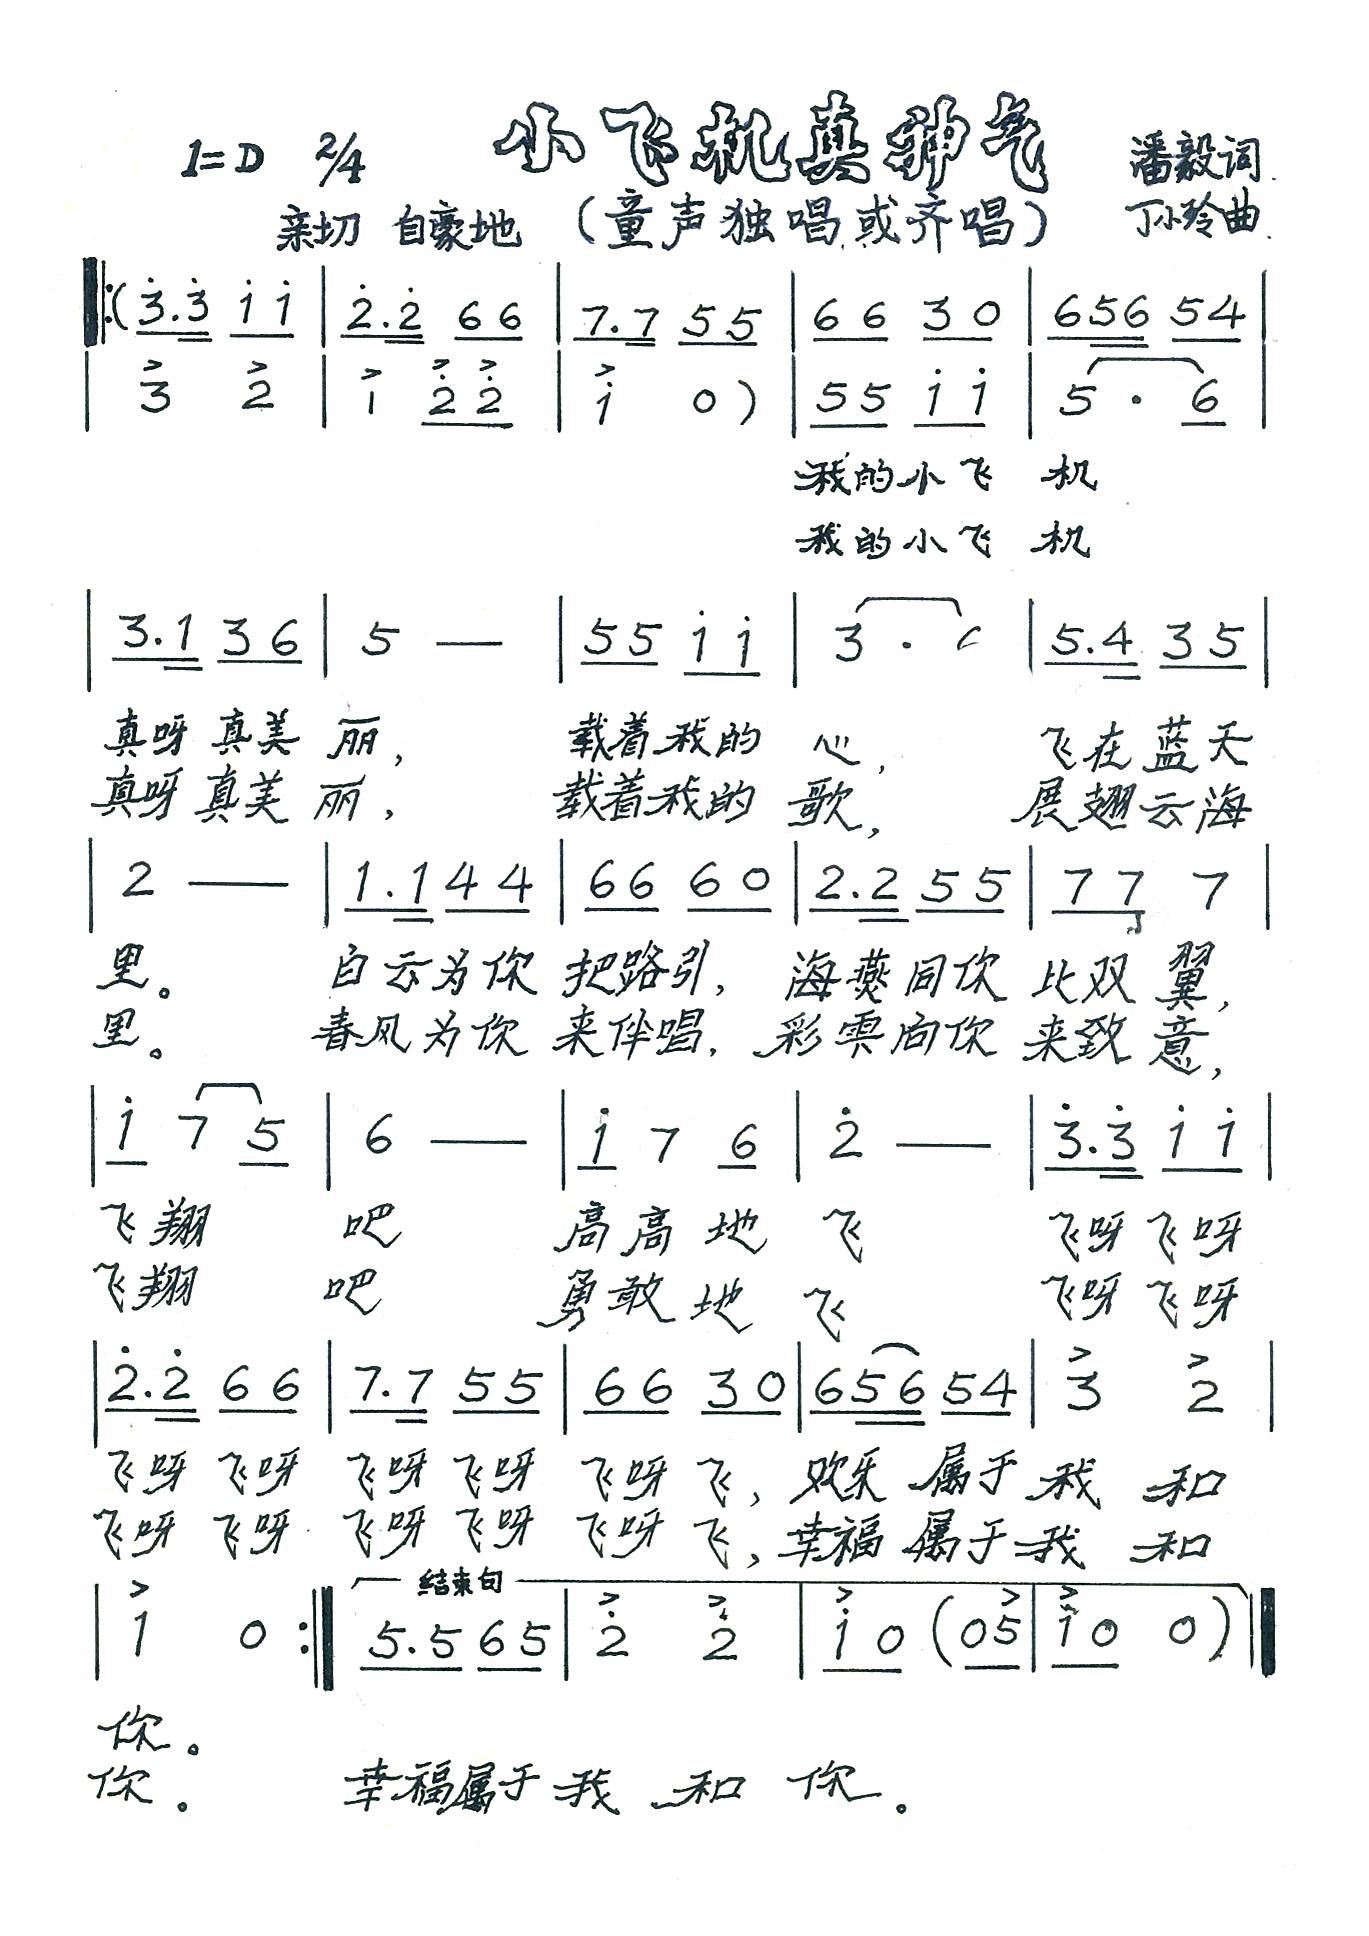 小飞机真神气
1=D 2/4 潘毅词
亲切 自豪地 (童声独唱或齐唱) 丁小玲曲
‖:(3̇.3̇ 1̇1̇ | 2̇.2̇ 66 | 7.7 55 | 66 30 | 656 54 |
| 3 2 | 1 2̇2̇ | 1̇ 0) | 55 1̇1̇ | 5 · 6 |
我的小飞 机
我的小飞 机
| 3.1 36 | 5 — | 55 1̇1̇ | 3 · | 5.4 35 |
真呀真美 丽, 载着我的 心, 飞在蓝天
真呀真美 丽, 载着我的 歌, 展翅云海
| 2 — | 1.1 44 | 66 60 | 2.2 55 | 77 7 |
里。 白云为你 把路引, 海燕同你 比双翼,
里。 春风为你 来伴唱, 彩雲向你 来致意,
| 1̇ 7 5 | 6 — | 1̇ 7 6 | 2̇ — | 3̇.3̇ 1̇1̇ |
飞翔 吧 高高地 飞 飞呀飞呀
飞翔 吧 勇敢地 飞 飞呀飞呀
| 2̇.2̇ 66 | 7.7 55 | 66 30 | 656 54 | 3 2 |
飞呀飞呀 飞呀飞呀 飞呀飞, 欢乐属于 我 和
飞呀飞呀 飞呀飞呀 飞呀飞, 幸福属于 我 和
结束句
| 1 0 :‖ 5.5 65 | 2̇ 2̇ | 1̇0 (05 | 1̇0 0) ‖
你。
你。 幸福属于 我 和 你。